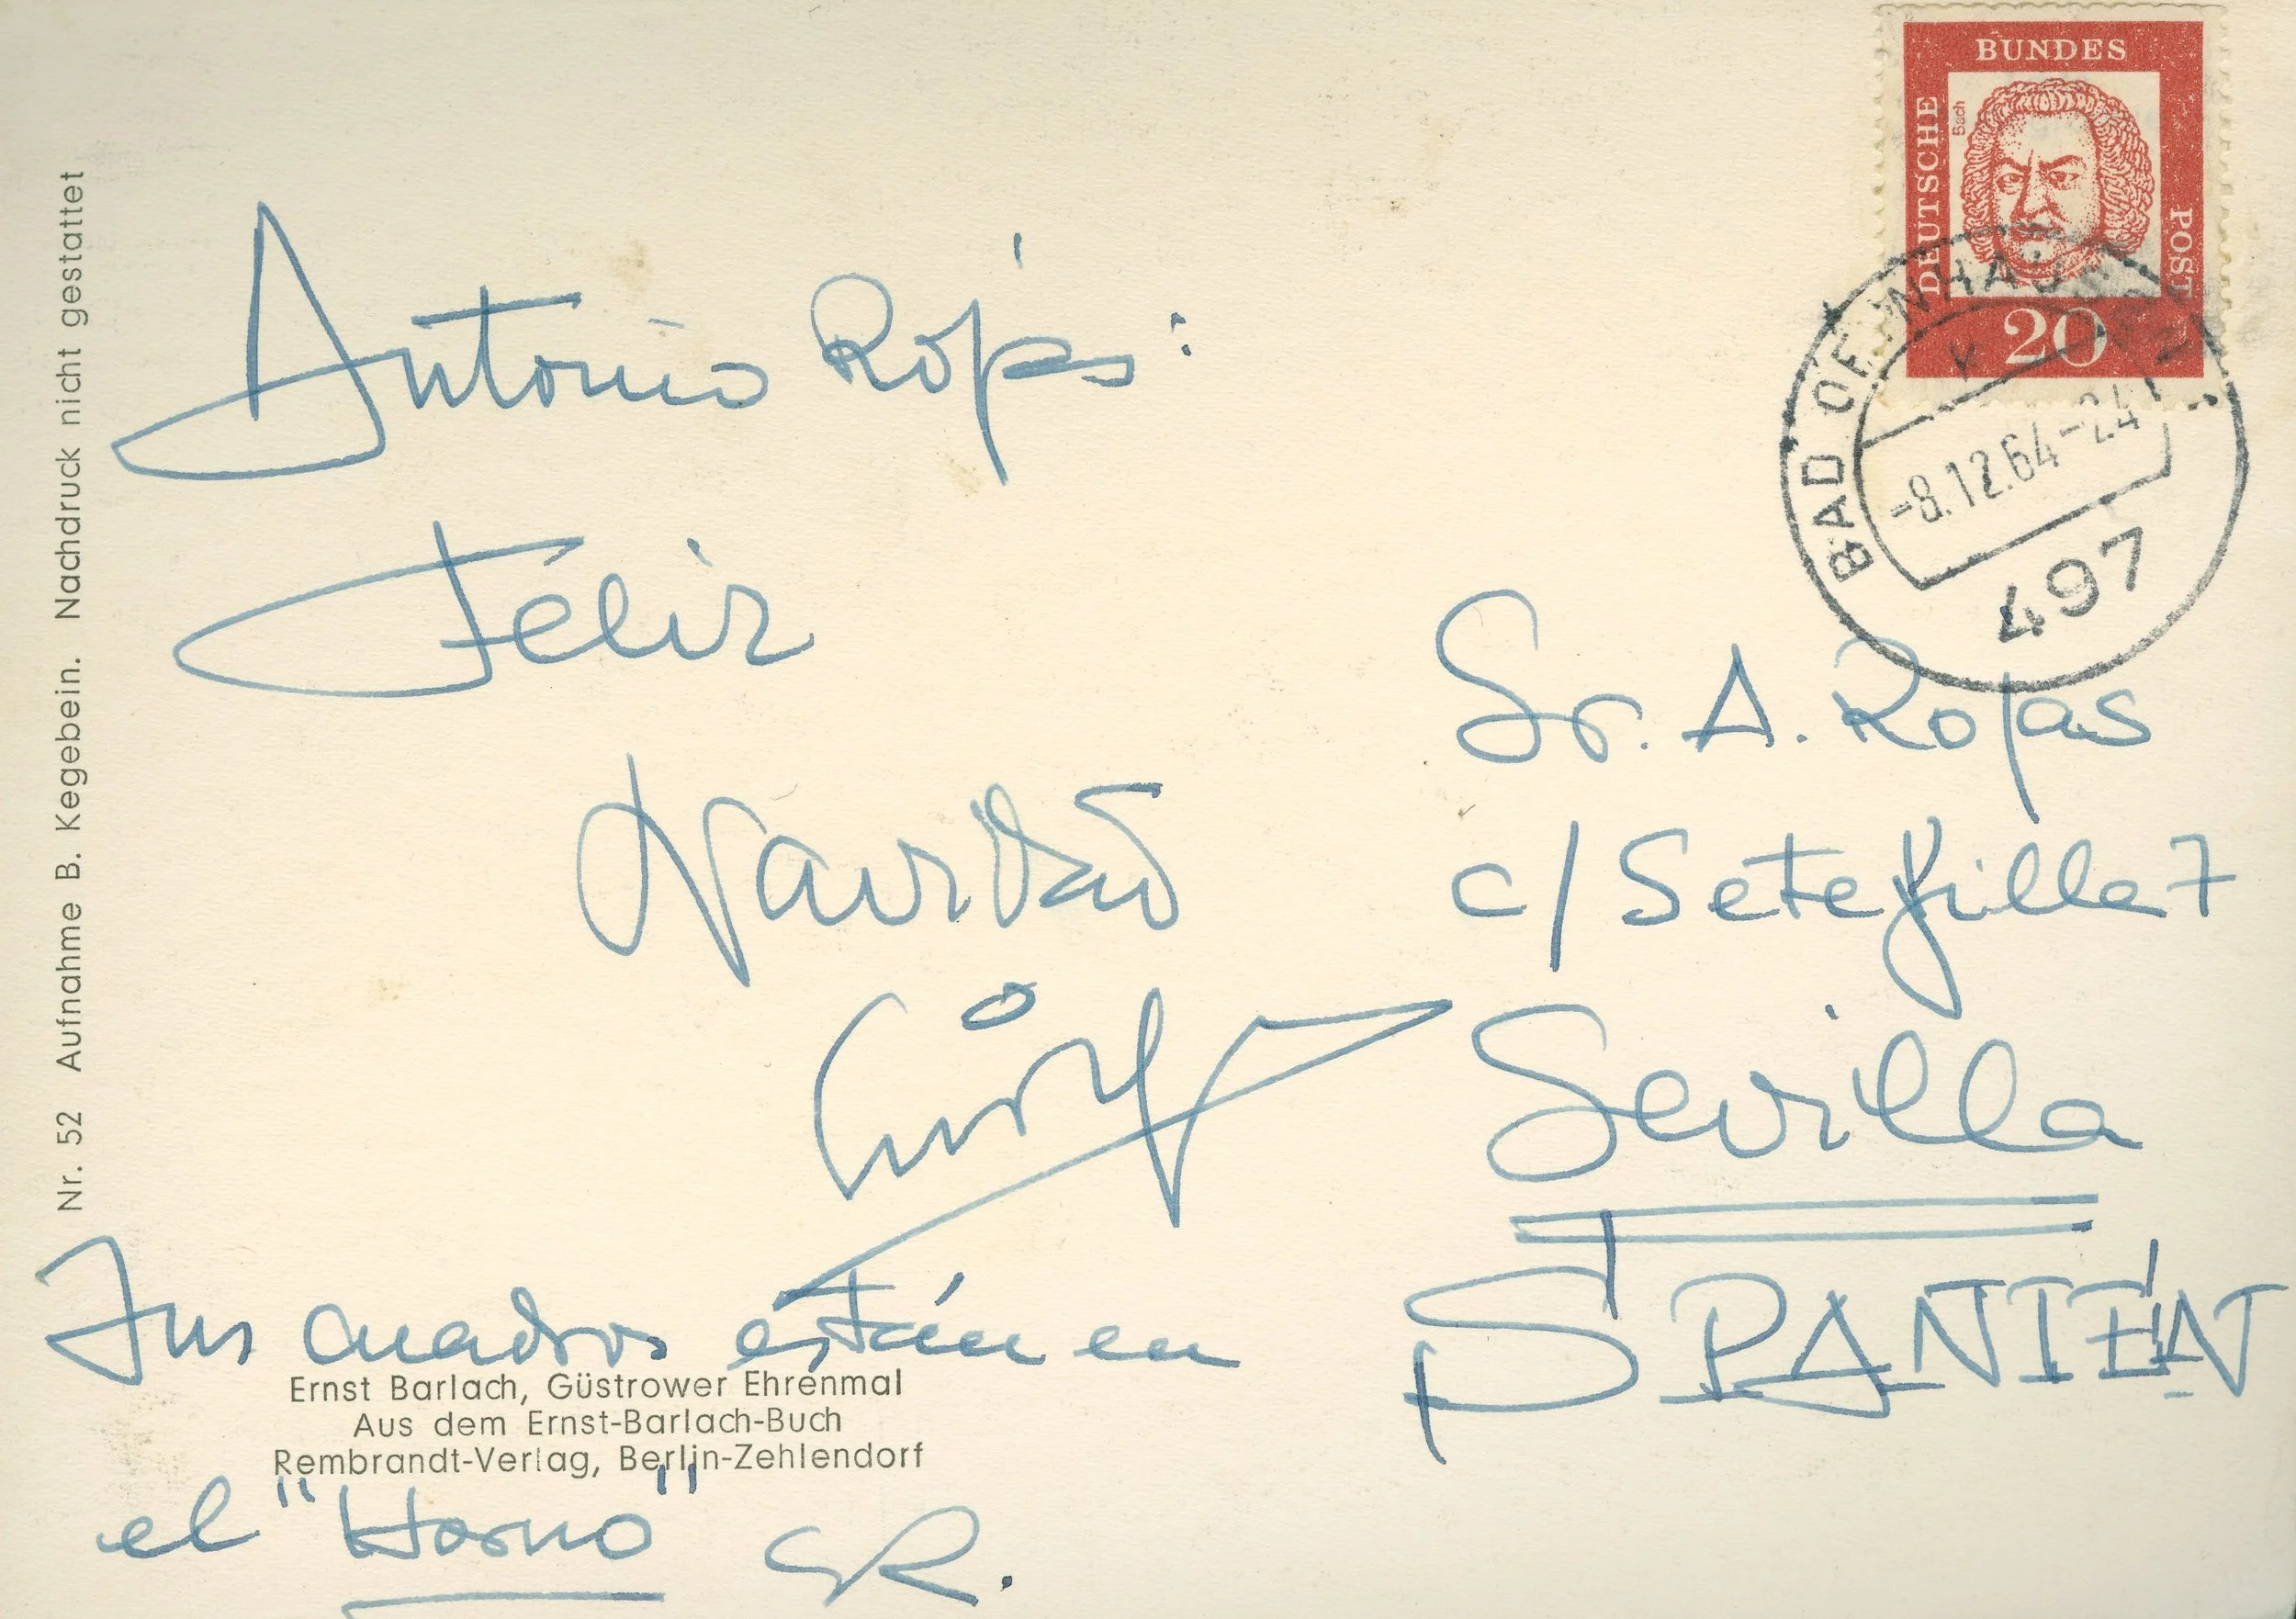 BUNDES
DEUTSCHE
POST
Bach
20
BAD OEYNHAUSEN
-8.12.64-24
497
Nr. 52 Aufnahme B. Kegebein. Nachdruck nicht gestattet
Antonio Rojas:
Feliz
Navidad
Tus cuadros están en
el "Horno" SR.
Ernst Barlach, Güstrower Ehrenmal
Aus dem Ernst-Barlach-Buch
Rembrandt-Verlag, Berlin-Zehlendorf
Sr. A. Rojas
c/ Setefilla 7
Sevilla
SPANIEN